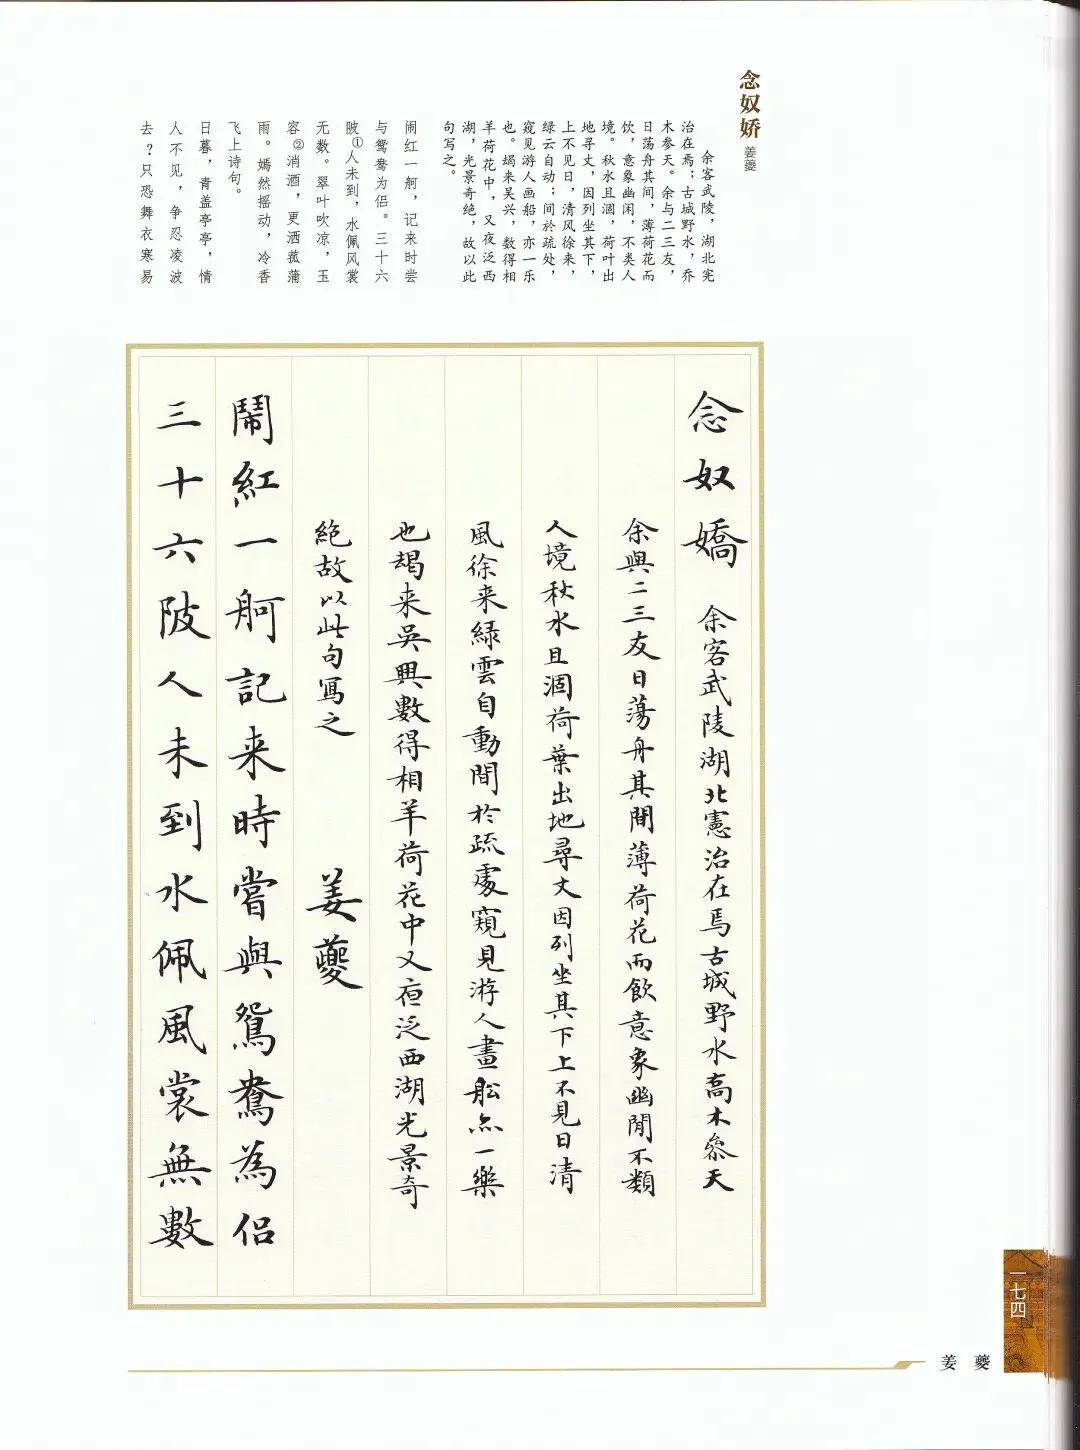 念奴娇
姜夔
余客武陵，湖北宪
治在焉；古城野水，乔
木参天。余与二三友，
日荡舟其间，薄荷花而
饮，意象幽闲，不类人
境。秋水且涸，荷叶出
地寻丈，因列坐其下，
上不见日，清风徐来，
绿云自动；间於疏处，
窥见游人画船，亦一乐
也。朅来吴兴，数得相
羊荷花中，又夜泛西
湖，光景奇绝，故以此
句写之。
闹红一舸，记来时尝
与鸳鸯为侣。三十六
陂①人未到，水佩风裳
无数。翠叶吹凉，玉
容②消酒，更洒菰蒲
雨。嫣然摇动，冷香
飞上诗句。
日暮，青盖亭亭，情
人不见，争忍凌波
去？只恐舞衣寒易
念奴嬌 余客武陵湖北憲治在焉古城野水高木參天
余與二三友日蕩舟其間薄荷花而飲意象幽閒不類
人境秋水且涸荷葉出地尋丈因列坐其下上不見日清
風徐来綠雲自動間於疏處窺見游人畫船亦一樂
也朅来吳興數得相羊荷花中又夜泛西湖光景奇
絕故以此句寫之 姜夔
鬧紅一舸記来時嘗與鴛鴦為侶
三十六陂人未到水佩風裳無數
一七四
姜夔